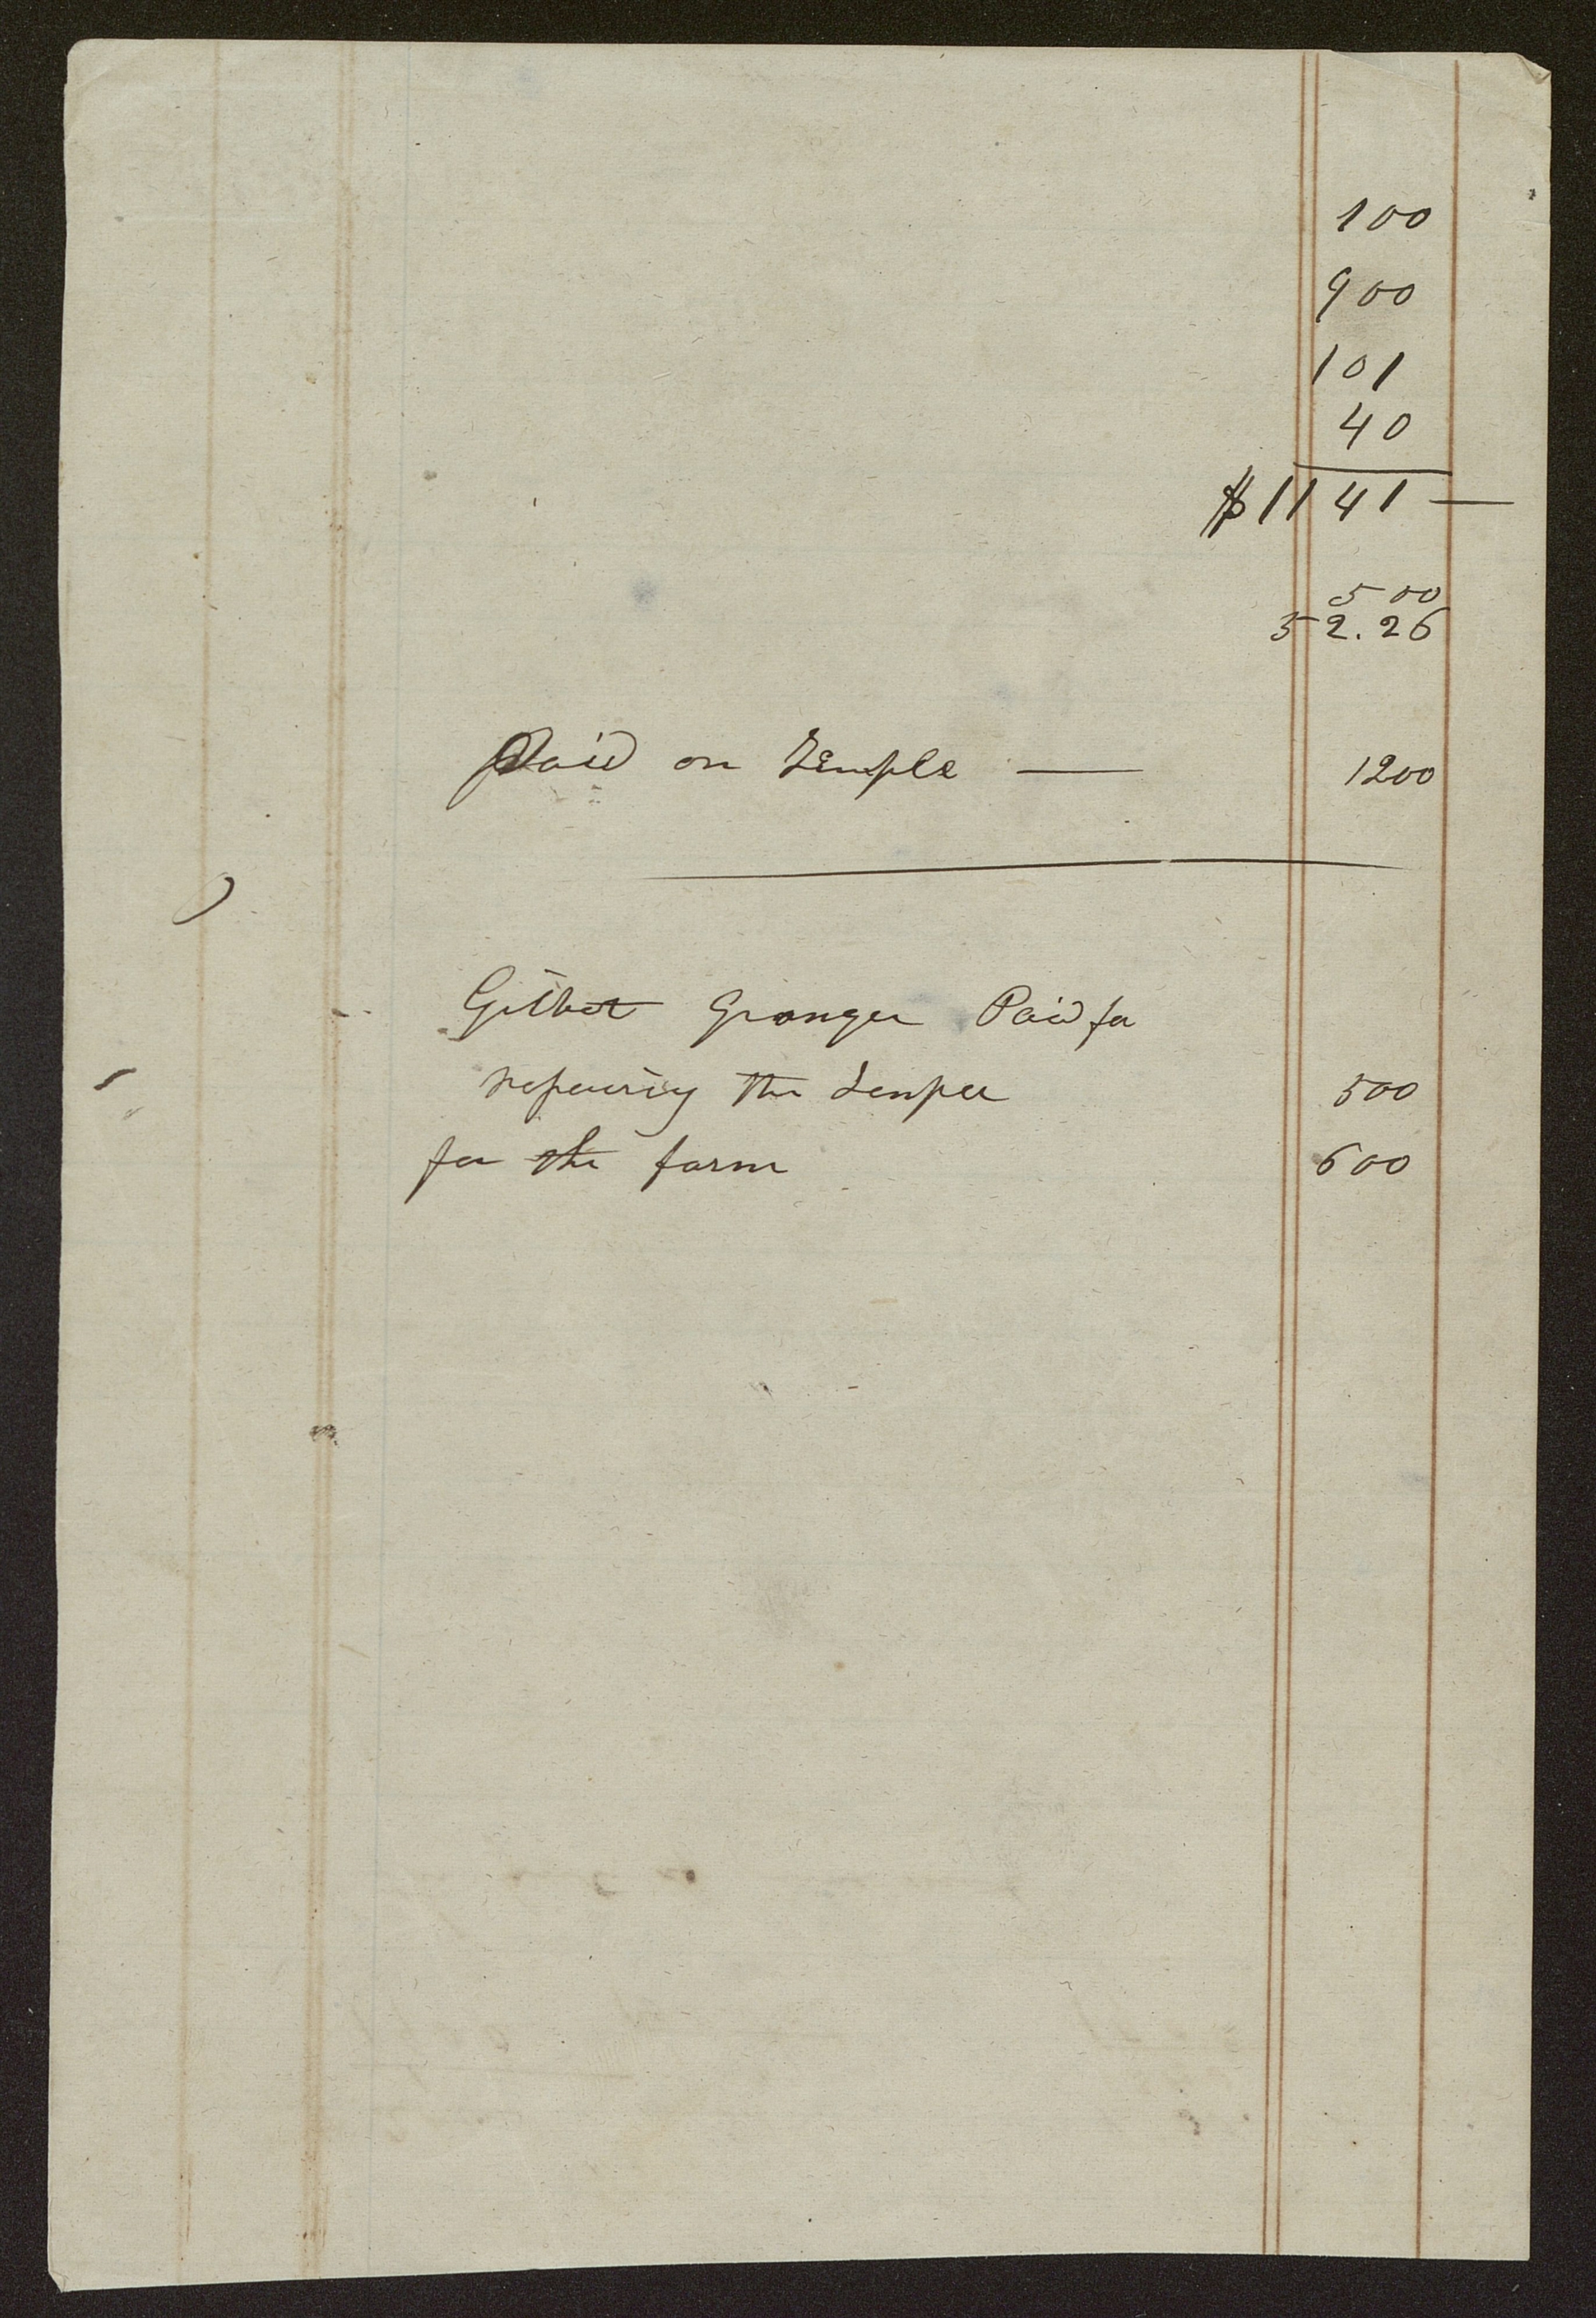 100
900
101
40
$1141 —
500
52.26
Paid on Temple — 1200
Gilbert Granger Paid for
repairing the Temple 500
for the farm 600